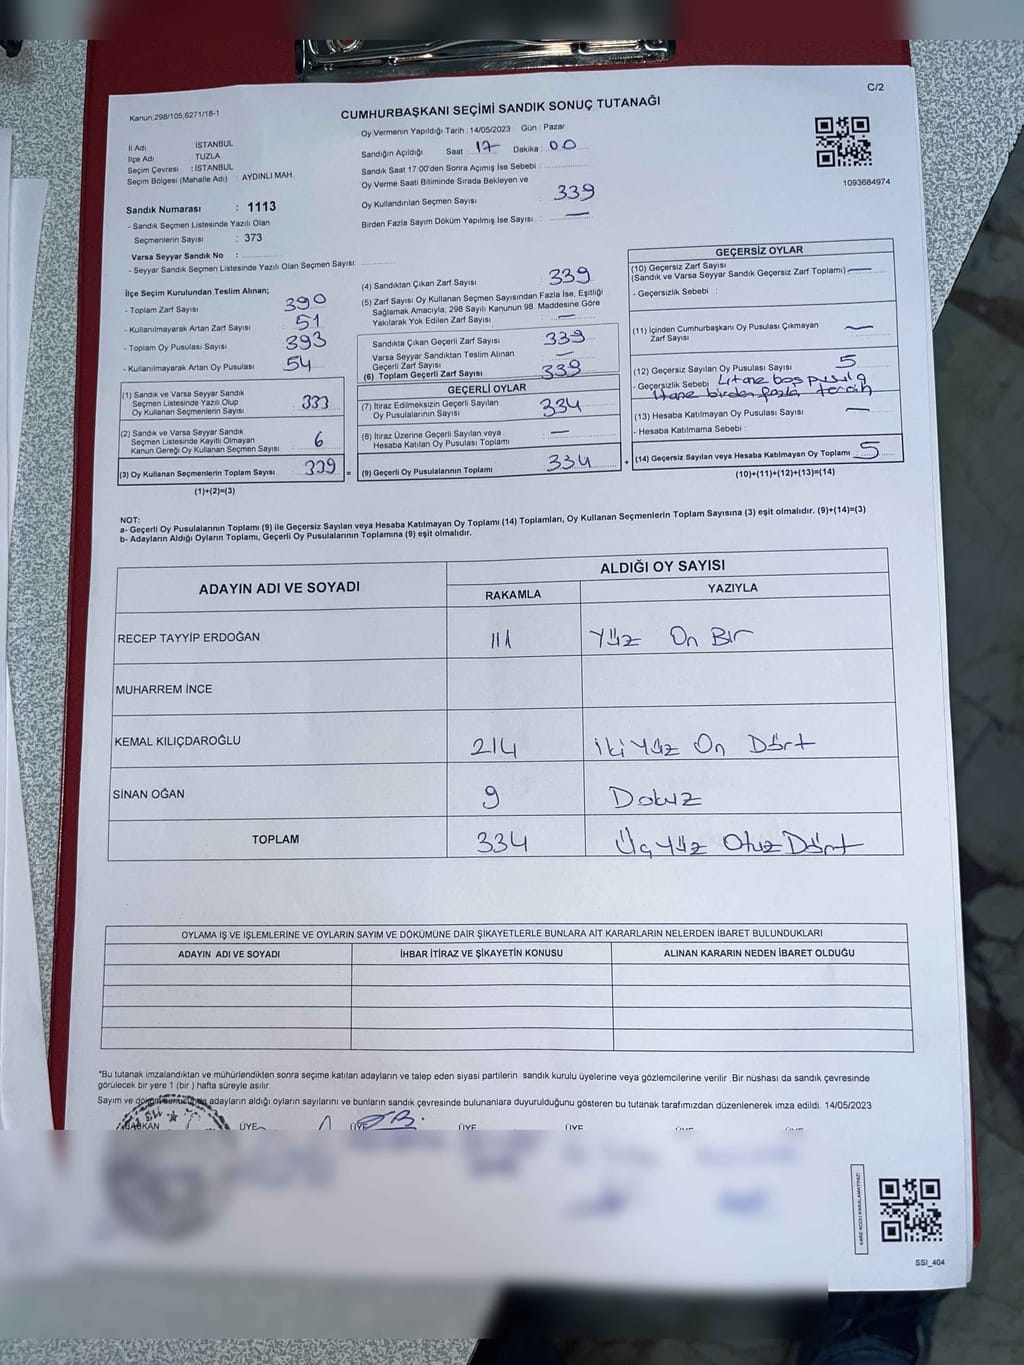 C/2
Kanun:298/105,6271/18-1
CUMHURBAŞKANI SEÇİMİ SANDIK SONUÇ TUTANAĞI
Oy Vermenin Yapıldığı Tarih :14/05/2023 Gün : Pazar
İl Adı İSTANBUL
İlçe Adı TUZLA
Seçim Çevresi : İSTANBUL
Seçim Bölgesi (Mahalle Adı) : AYDINLI MAH.
Sandığın Açıldığı Saat 17 Dakika : 00
Sandık Saat 17:00'den Sonra Açımış İse Sebebi :
Oy Verme Saati Bitiminde Sırada Bekleyen ve
Oy Kullandırılan Seçmen Sayısı : 339
Birden Fazla Sayım Döküm Yapılmış İse Sayısı : —
1093684974
Sandık Numarası : 1113
- Sandık Seçmen Listesinde Yazılı Olan
Seçmenlerin Sayısı : 373
Varsa Seyyar Sandık No :
- Seyyar Sandık Seçmen Listesinde Yazılı Olan Seçmen Sayısı:
İlçe Seçim Kurulundan Teslim Alınan;
- Toplam Zarf Sayısı : 390
- Kullanılmayarak Artan Zarf Sayısı : 51
- Toplam Oy Pusulası Sayısı : 393
- Kullanılmayarak Artan Oy Pusulası : 54
(1) Sandık ve Varsa Seyyar Sandık
Seçmen Listesinde Yazılı Olup
Oy Kullanan Seçmenlerin Sayısı : 333
(2) Sandık ve Varsa Seyyar Sandık
Seçmen Listesinde Kayıtlı Olmayan
Kanun Gereği Oy Kullanan Seçmen Sayısı : 6
(3) Oy Kullanan Seçmenlerin Toplam Sayısı : 339 =
(1)+(2)=(3)
(4) Sandıktan Çıkan Zarf Sayısı : 339
(5) Zarf Sayısı Oy Kullanan Seçmen Sayısından Fazla İse, Eşitliği
Sağlamak Amacıyla; 298 Sayılı Kanunun 98. Maddesine Göre
Yakılarak Yok Edilen Zarf Sayısı : —
Sandıkta Çıkan Geçerli Zarf Sayısı : 339
Varsa Seyyar Sandıktan Teslim Alınan
Geçerli Zarf Sayısı : —
(6) Toplam Geçerli Zarf Sayısı : 339
GEÇERLİ OYLAR
(7) İtiraz Edilmeksizin Geçerli Sayılan
Oy Pusulalarının Sayısı : 334
(8) İtiraz Üzerine Geçerli Sayılan veya
Hesaba Katılan Oy Pusulası Toplamı : —
(9) Geçerli Oy Pusulalarının Toplamı : 334 +
GEÇERSİZ OYLAR
(10) Geçersiz Zarf Sayısı
(Sandık ve Varsa Seyyar Sandık Geçersiz Zarf Toplamı) : —
- Geçersizlik Sebebi :
(11) İçinden Cumhurbaşkanı Oy Pusulası Çıkmayan
Zarf Sayısı : —
(12) Geçersiz Sayılan Oy Pusulası Sayısı : 5
- Geçersizlik Sebebi : 4 tane boş pusula
1 tane birden fazla tercih
(13) Hesaba Katılmayan Oy Pusulası Sayısı : —
- Hesaba Katılmama Sebebi :
(14) Geçersiz Sayılan veya Hesaba Katılmayan Oy Toplamı : 5
(10)+(11)+(12)+(13)=(14)
NOT:
a- Geçerli Oy Pusulalarının Toplamı (9) ile Geçersiz Sayılan veya Hesaba Katılmayan Oy Toplamı (14) Toplamları, Oy Kullanan Seçmenlerin Toplam Sayısına (3) eşit olmalıdır. (9)+(14)=(3)
b- Adayların Aldığı Oyların Toplamı, Geçerli Oy Pusulalarının Toplamına (9) eşit olmalıdır.
ADAYIN ADI VE SOYADI ALDIĞI OY SAYISI
RAKAMLA YAZIYLA
RECEP TAYYİP ERDOĞAN 111 Yüz On Bir
MUHARREM İNCE
KEMAL KILIÇDAROĞLU 214 İki Yüz On Dört
SİNAN OĞAN 9 Dokuz
TOPLAM 334 Üç Yüz Otuz Dört
OYLAMA İŞ VE İŞLEMLERİNE VE OYLARIN SAYIM VE DÖKÜMÜNE DAİR ŞİKAYETLERLE BUNLARA AİT KARARLARIN NELERDEN İBARET BULUNDUKLARI
ADAYIN ADI VE SOYADI İHBAR İTİRAZ VE ŞİKAYETİN KONUSU ALINAN KARARIN NEDEN İBARET OLDUĞU
*Bu tutanak imzalandıktan ve mühürlendikten sonra seçime katılan adayların ve talep eden siyasi partilerin sandık kurulu üyelerine veya gözlemcilerine verilir .Bir nüshası da sandık çevresinde
görülecek bir yere 1 (bir ) hafta süreyle asılır.
Sayım ve adayların aldığı oyların sayılarını ve bunların sandık çevresinde bulunanlara duyurulduğunu gösteren bu tutanak tarafımızdan düzenlenerek imza edildi. 14/05/2023
BAŞKAN ÜYE ÜYE ÜYE ÜYE
KARE KODU KARALAMAYINIZ!
SSI_404